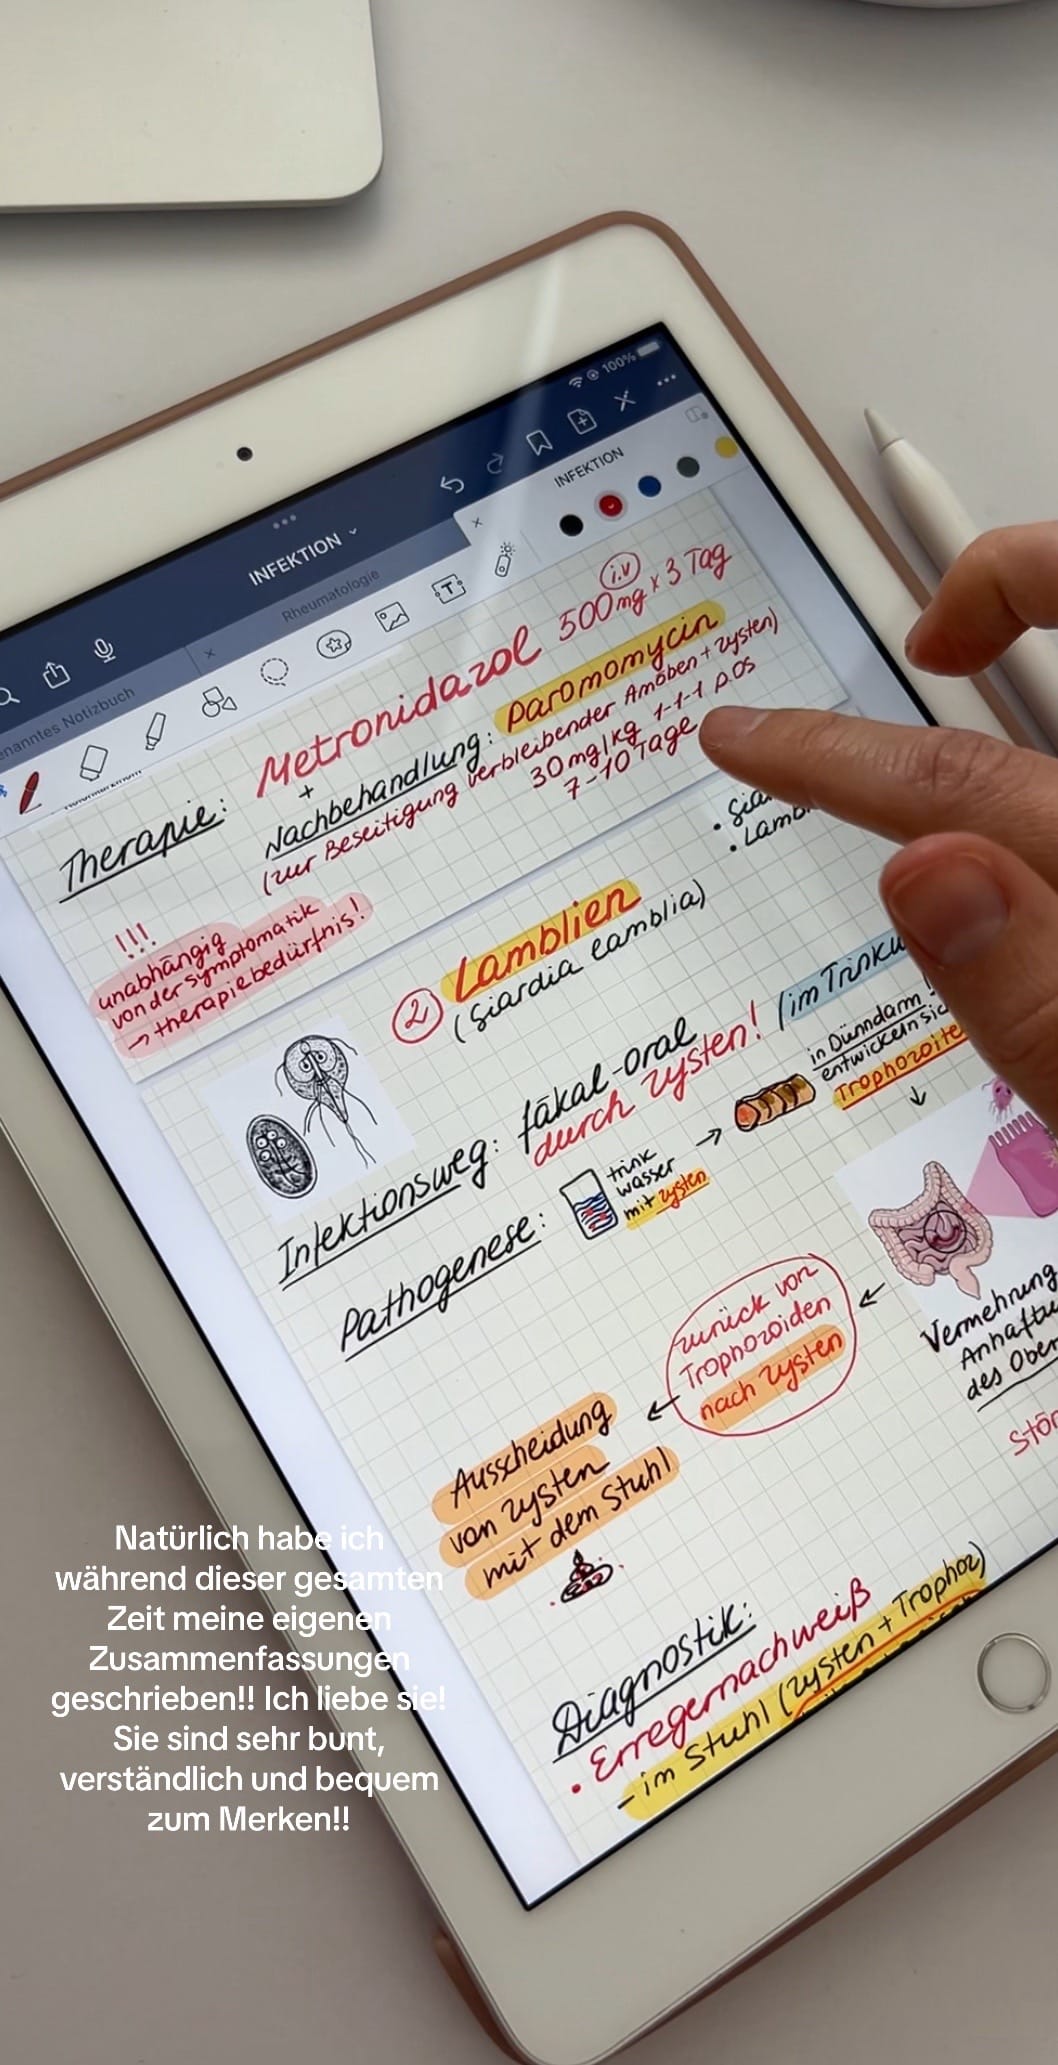 100%
INFEKTION
INFEKTION
Rheumatologie
enanntes Notizbuch
Therapie: Metronidazol 500mg x 3 Tag
i.v
+
Nachbehandlung: Paromomycin
(zur Beseitigung verbleibender Amöben + Zysten)
30mg/kg 1-1-1 p.os
7-10 Tage
!!!
unabhängig
von der Symptomatik
→ therapiebedürfnis!
② Lamblien
(Giardia lamblia)
Infektionsweg: fäkal-oral
durch Zysten! (im Trinkw
Pathogenese:
trink
wasser
mit Zysten
→
in Dünndarm!
entwickeln sic
Trophozoite
↓
Vermehrung
Anhaftu
des Ober
Stör
←
zurück von
Trophozoiden
nach Zysten
←
Ausscheidung
von Zysten
mit dem Stuhl
Diagnostik:
• Erregernachweiß
- im Stuhl (Zysten + Trophoz)
Natürlich habe ich
während dieser gesamten
Zeit meine eigenen
Zusammenfassungen
geschrieben!! Ich liebe sie!
Sie sind sehr bunt,
verständlich und bequem
zum Merken!!